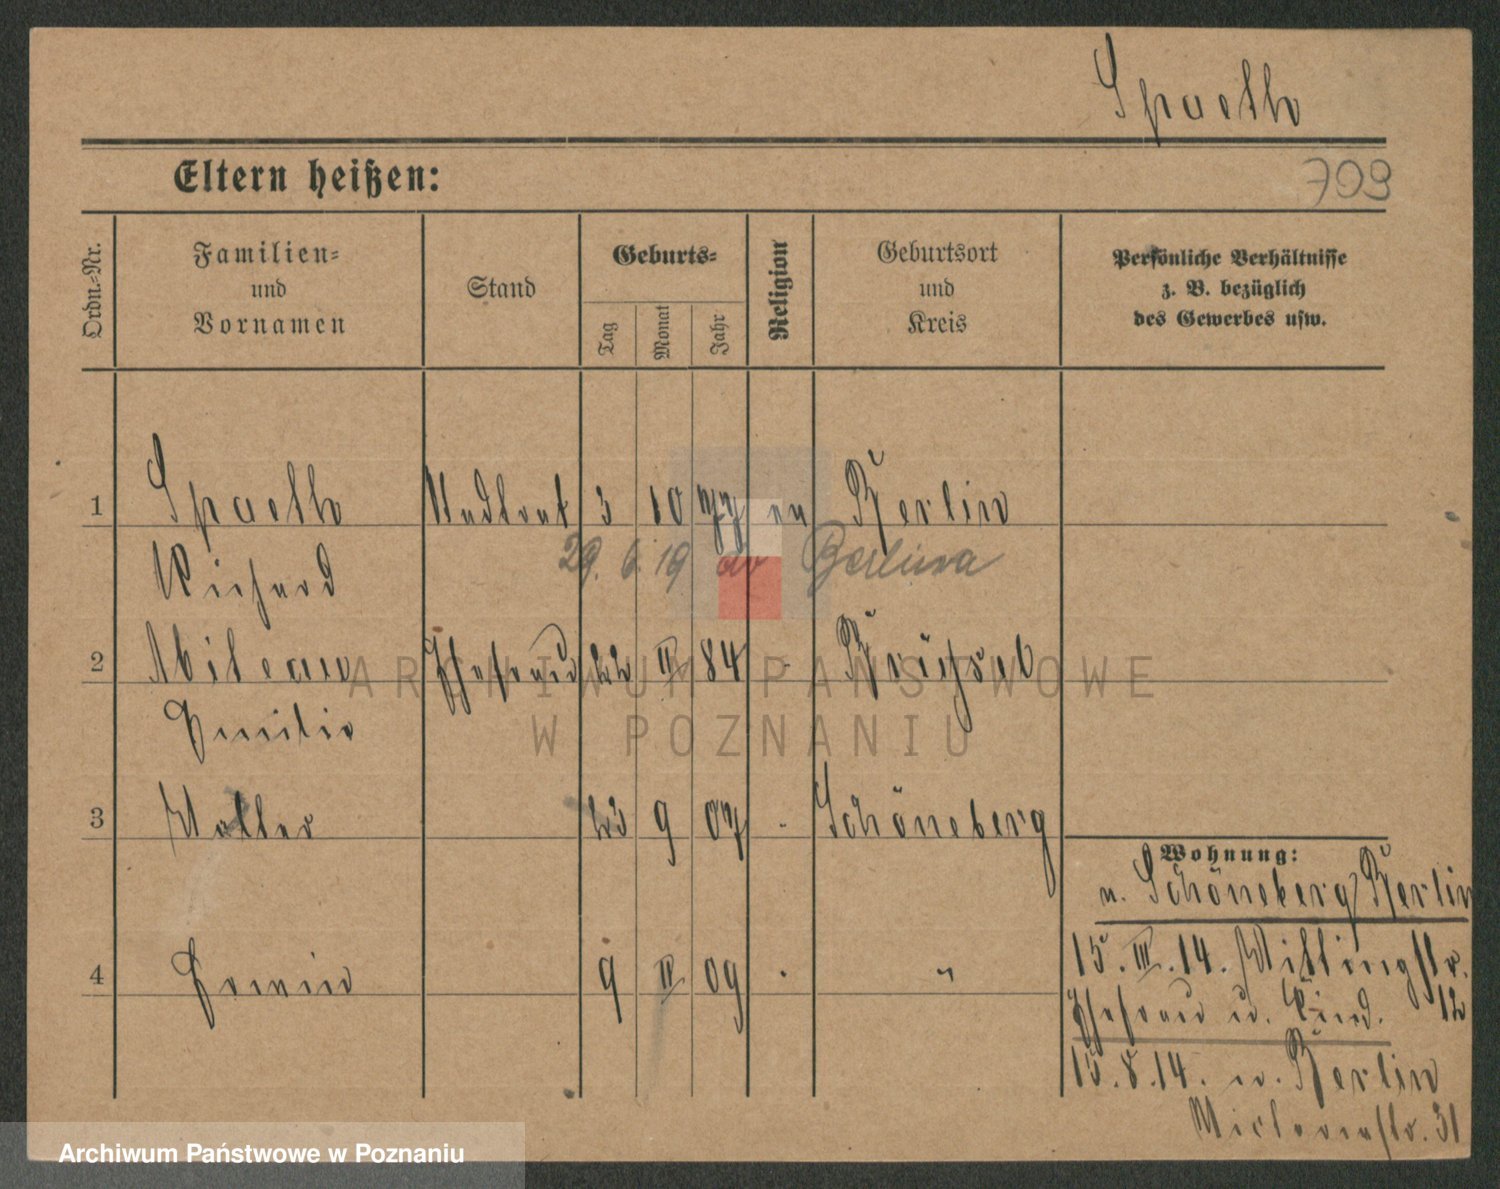 Spaeth
Eltern heißen:
709
Ordn.-Nr.
Familien-
und
Vornamen
Stand
Geburts-
Tag
Monat
Jahr
Religion
Geburtsort
und
Kreis
Persönliche Verhältnisse
z. B. bezüglich
des Gewerbes usw.
1 Spaeth Stadtrat 3 10 77 ev Berlin
29. 6. 19 do Berlina
Richard
2 Ehefrau 22 II 84 - Brüssel
Emilie
3 Walter 23 9 07 - Schöneberg
Wohnung:
v. Schöneberg/Berlin
4 Erwin 9 II 09 - "
15. III. 14.
12
Ehefrau u. Kind.
15. 8. 14. n. Berlin
31
ARCHIWUM PAŃSTWOWE
W POZNANIU
Archiwum Państwowe w Poznaniu